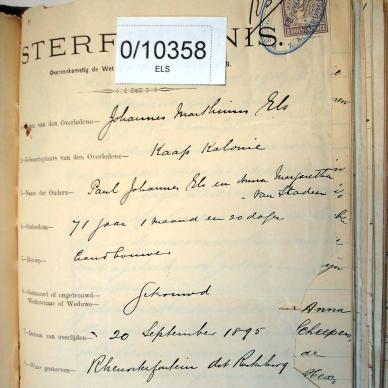 STERF NIS.
0/10358
ELS
Overeenkomstig de Wet 9.
van den Overledene— Johannes Marthinus Els
2.—Geboorteplaats van den Overledene— Kaap Kolonie
3.—Naam der Ouders— Paul Johannes Els en Anna Margaretha
van Staden
4.—Ouderdom— 71 jaar 1 maand en 20 dagen
5.—Beroep—
6.—Getrouwd of ongetrouwd
Weduwnaar of Weduwe— Getrouwd
7.—Datum van overlijden— 20 September 1895
8.—Waar gestorven— Rhenosterfontein dist Rustenburg
Anna
de